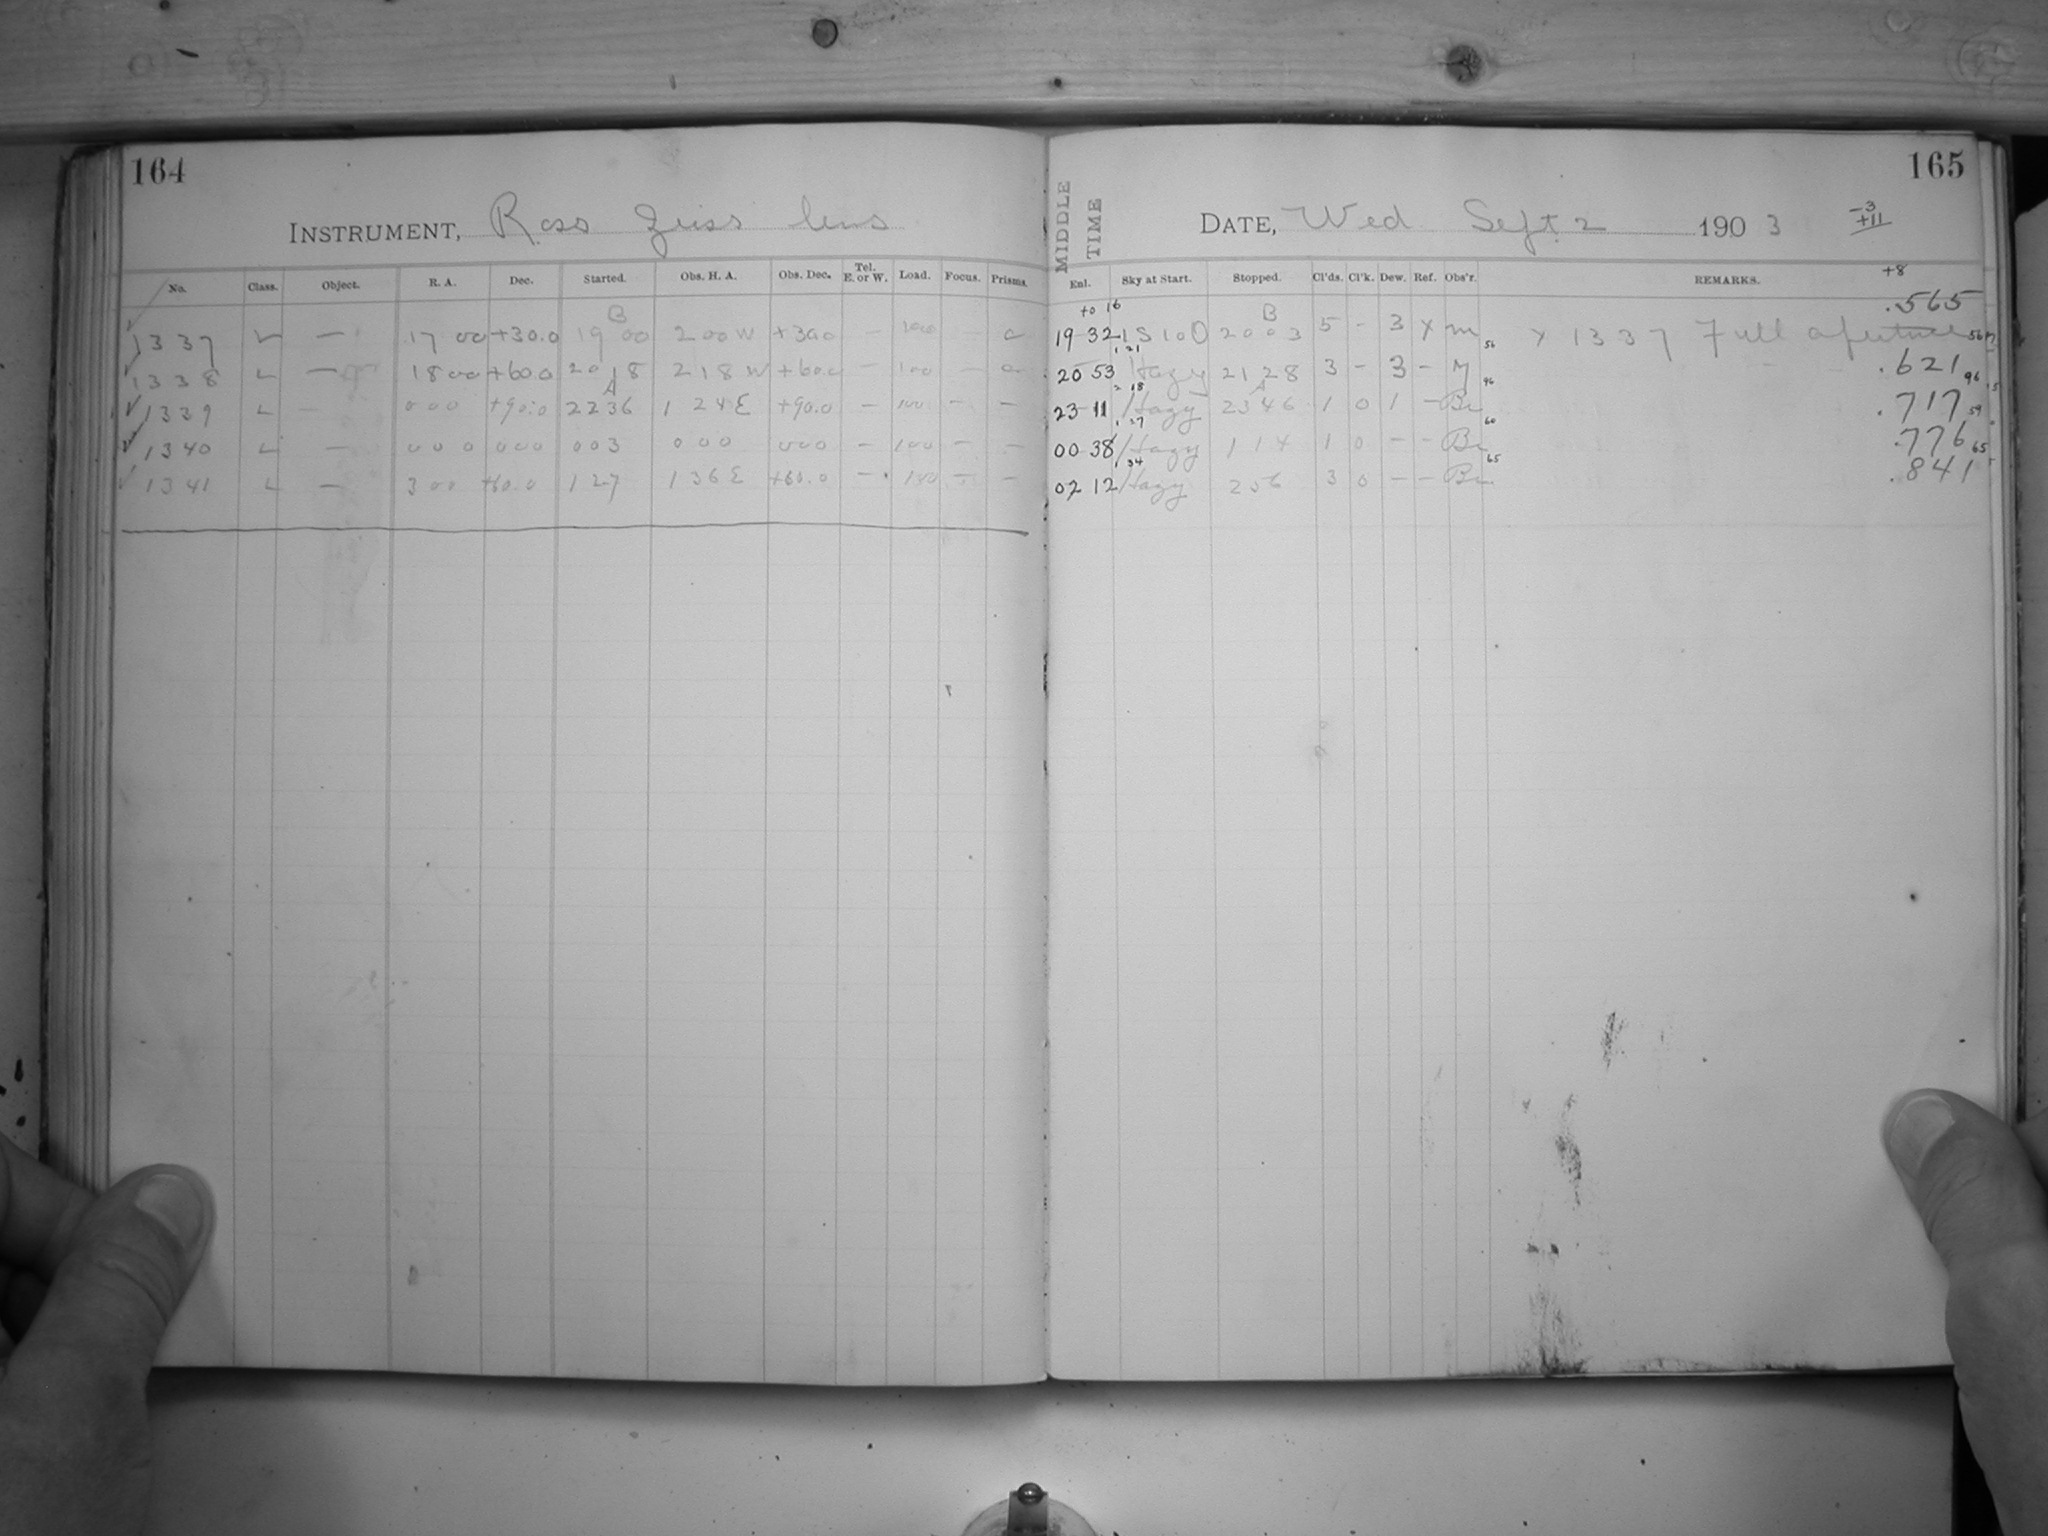 164
INSTRUMENT, Ross Zeiss lens
No. Class. Object. R. A. Dec. Started. Obs. H. A. Obs. Dec. Tel. E. or W. Load. Focus. Prisms.
B
1337 L — 17 00 +30.0 19 00 2 00 W +30.0 — 100 —
1338 L — 18 00 +60.0 20 18 2 18 W +60.0 — 100 —
A
1339 L — 0 00 +90.0 22 36 1 24 E +90.0 — 100 — —
1340 L — 0 00 0 00 0 03 0 00 0 00 — 100 — —
1341 L — 3 00 +60.0 1 27 1 36 E +60.0 — 100 — —
165
MIDDLE TIME
DATE, Wed Sept 2 1903
-3
+11
+8
Enl. Sky at Start. Stopped. Cl'ds. Cl'k. Dew. Ref. Obs'r. REMARKS.
to 16
B
.565
19 32 1 S 10 0 20 03 5 — 3 x m 56 x 1337 Full aperture
1 21
20 53 Hazy 21 28 3 — 3 — 96 .621 96
2 18
A
23 11 Hazy 23 46 1 0 1 — Br 60 .717 59
1 27
00 38 Hazy 1 14 1 0 — — Br 65 .776 65
1 34
02 12 Hazy 2 36 3 0 — — Br .841